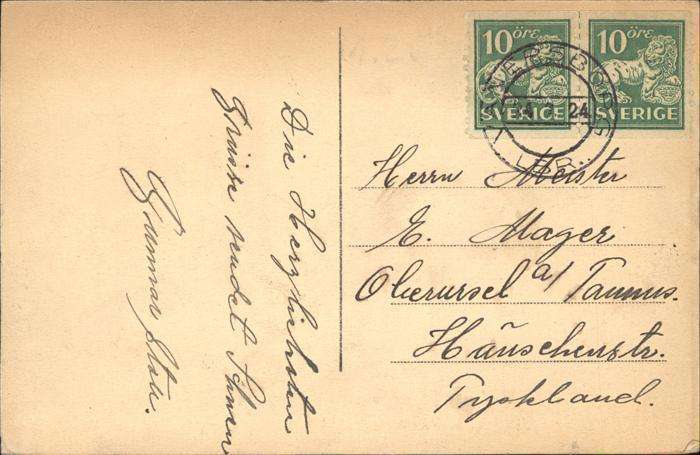 10 öre
SVERIGE
10 öre
SVERIGE
24
LBR.
Herrn Meister
E. Mager
Oberursel a/ Taunus.
Häuschenstr.
Tyskland.
Die Herzlichsten
Grüsse sendet Ihnen
Gunnar